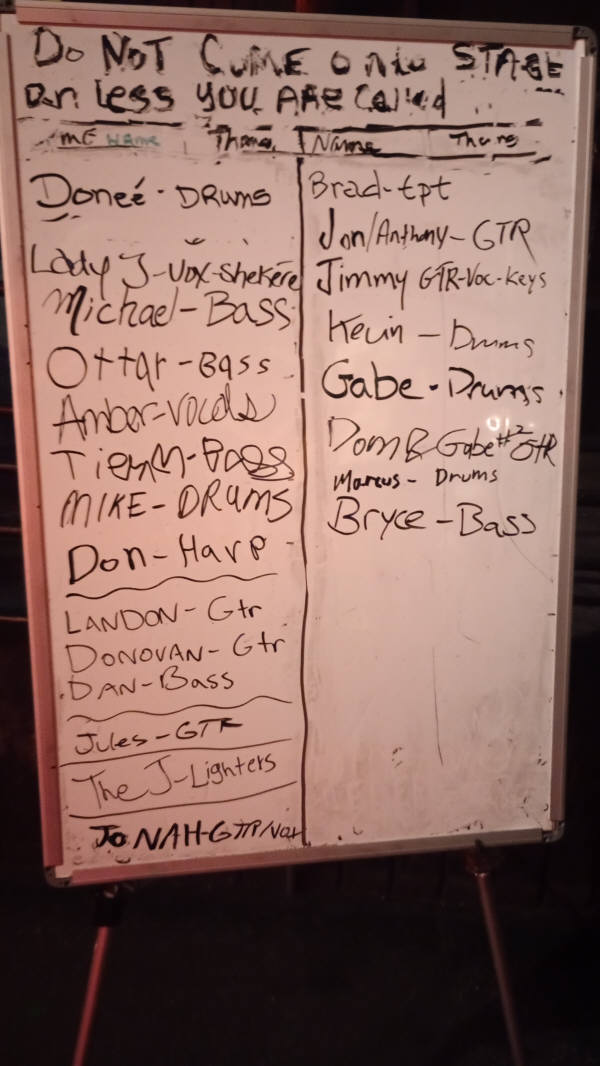 Do NOT CUME onto STAGE
un less YOU ARE Called
ME Name Thang Name Thang
Doneé - DRUMS
Lady J-Vox-Shekere
Michael-Bass
Ottar-Bass
Amber-Vocals
MIKE-DRUMS
Don-Harp
LANDON-Gtr
DONOVAN-Gtr
DAN-Bass
Jules-GTR
The J-Lighters
JoNAH-GTR/Vox
Brad-tpt
Jon/Anthony-GTR
Jimmy GTR-Voc-Keys
Kevin - Drums
Gabe - Drums
Dom B Gabe #2 GTR
Marcus - Drums
Bryce - Bass